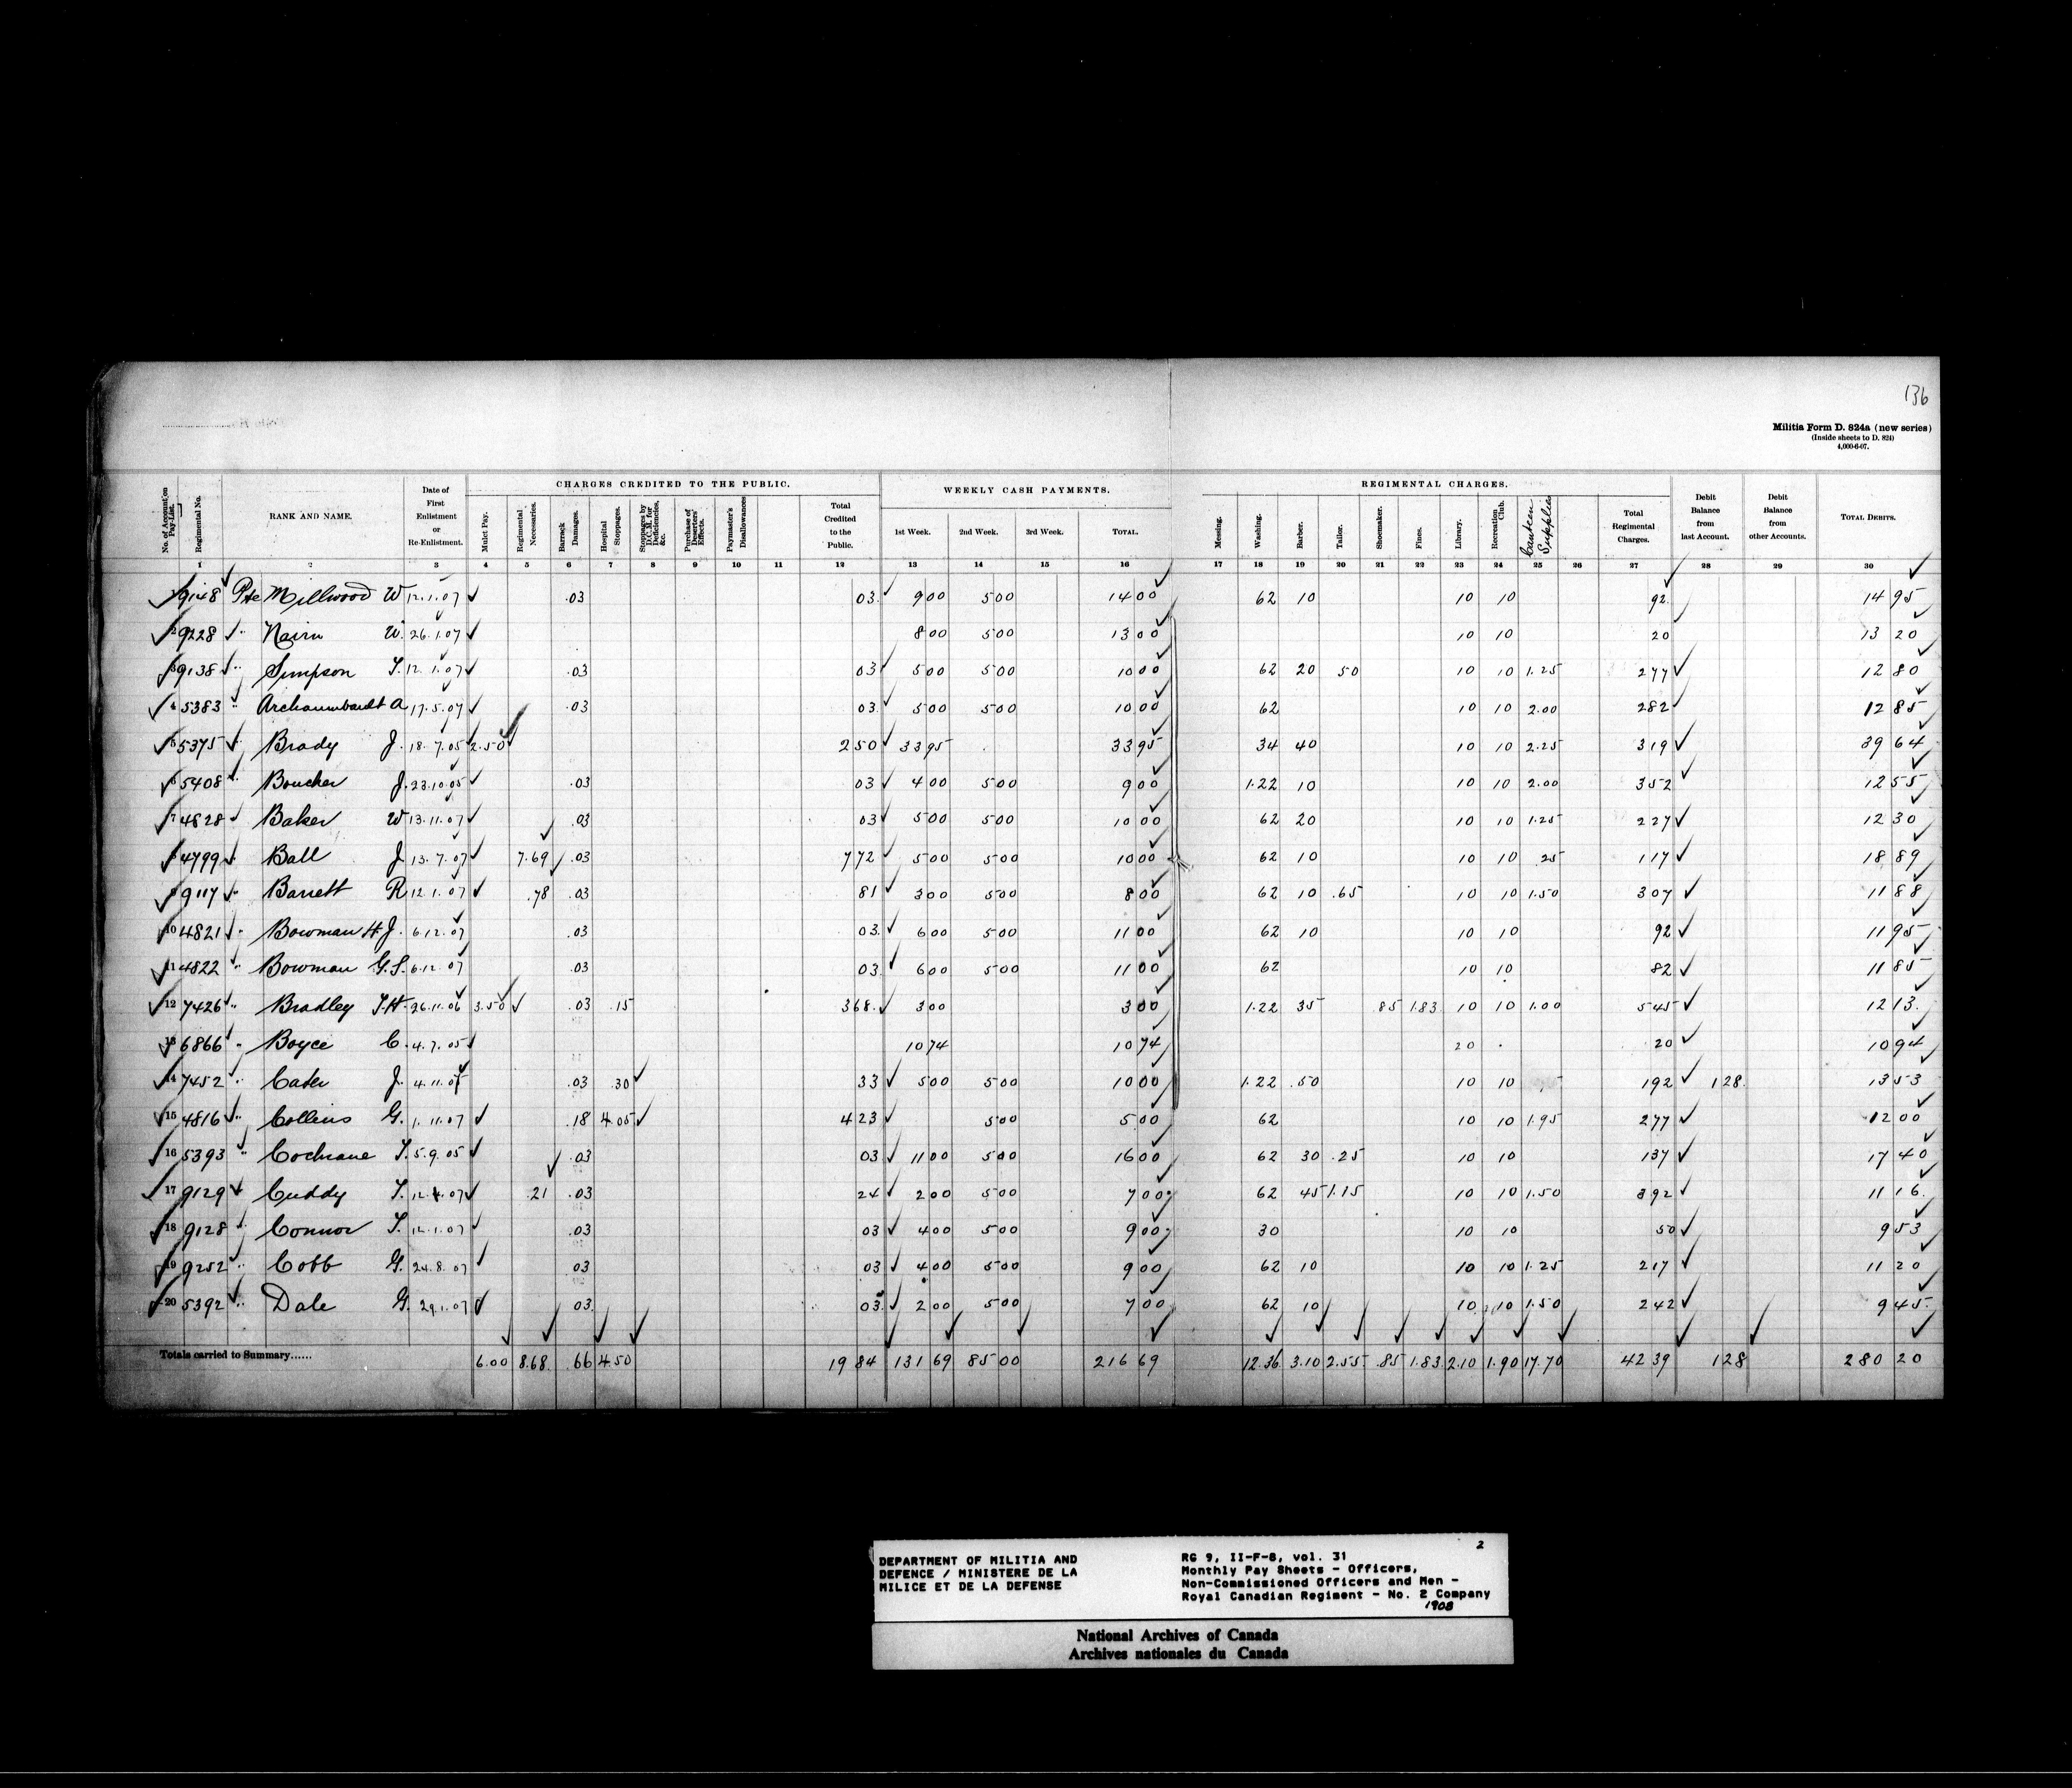 136
Militia Form D. 824a (new series)
(Inside sheets to D. 824)
4,000-6-07.
CHARGES CREDITED TO THE PUBLIC. WEEKLY CASH PAYMENTS. REGIMENTAL CHARGES.
No. of Account on Pay-List. Regimental No. RANK AND NAME. Date of First Enlistment or Re-Enlistment. Mulct Pay. Regimental Necessaries. Barrack Damages. Hospital Stoppages. Stoppages by D.C.M. for Deficiencies, &c. Purchase of Deserters' Effects. Paymaster's Disallowances Total Credited to the Public. 1st Week. 2nd Week. 3rd Week. TOTAL. Messing. Washing. Barber. Tailor. Shoemaker. Fines. Library. Recreation Club. Canteen Supplies Total Regimental Charges. Debit Balance from last Account. Debit Balance from other Accounts. TOTAL DEBITS.
1 2 3 4 5 6 7 8 9 10 11 12 13 14 15 16 17 18 19 20 21 22 23 24 25 26 27 28 29 30
9148 Pte Millwood W 12.1.07 .03 03 9 00 5 00 14 00 62 10 10 10 92 14 95
2 9228 " Nairn W. 26.1.07 8 00 5 00 13 00 10 10 20 13 20
3 9138 " Simpson T. 12.1.07 .03 03 5 00 5 00 10 00 62 20 50 10 10 1.25 2 77 12 80
4 5383 " Archaumbardt A 17.5.07 .03 03 5 00 5 00 10 00 62 10 10 2.00 2 82 12 85
5 5375 " Brady J. 18.7.05 2.50 2 50 33 95 33 95 34 40 10 10 2.25 3 19 39 64
6 5408 " Boucher J. 23.10.05 .03 03 4 00 5 00 9 00 1.22 10 10 10 2.00 3 52 12 55
7 4828 " Baker W 13.11.07 .03 03 5 00 5 00 10 00 62 20 10 10 1.25 2 27 12 30
8 4799 " Ball J 13.7.07 7.69 .03 7 72 5 00 5 00 10 00 62 10 10 10 25 1 17 18 89
9 9117 " Barrett R 12.1.07 .78 .03 81 3 00 5 00 8 00 62 10 .65 10 10 1.50 3 07 11 88
10 4821 " Bowman H.J. 6.12.07 .03 03 6 00 5 00 11 00 62 10 10 10 92 11 95
11 4822 " Bowman G.S. 6.12.07 .03 03 6 00 5 00 11 00 62 10 10 82 11 85
12 7426 " Bradley T.H. 26.11.06 3.50 .03 .15 3 68 3 00 3 00 1.22 35 .85 1.83 10 10 1.00 5 45 12 13
13 6866 " Boyce C. 4.7.05 10 74 10 74 20 20 10 94
14 7452 " Cater J. 4.11.07 .03 .30 33 5 00 5 00 10 00 1.22 .50 10 10 1 92 1 28 13 53
15 4816 " Collins G. 1.11.07 .18 4.05 4 23 5 00 5 00 62 10 10 1.95 2 77 12 00
16 5393 " Cochrane T. 5.9.05 .03 03 11 00 5 00 16 00 62 30 .25 10 10 1 37 17 40
17 9129 " Cuddy T. 12.1.07 .21 .03 24 2 00 5 00 7 00 62 45 1.15 10 10 1.50 3 92 11 16
18 9128 " Connor T. 12.1.07 .03 03 4 00 5 00 9 00 30 10 10 50 9 53
19 9252 " Cobb G. 24.8.07 03 03 4 00 5 00 9 00 62 10 10 10 1.25 2 17 11 20
20 5392 " Dale G. 29.1.07 03 03 2 00 5 00 7 00 62 10 10 10 1.50 2 42 9 45
Totals carried to Summary...... 6.00 8.68 .66 4.50 19 84 131 69 85 00 216 69 12.36 3.10 2.55 .85 1.83 2.10 1.90 17.70 42 39 1 28 280 20
2
DEPARTMENT OF MILITIA AND
DEFENCE / MINISTERE DE LA
MILICE ET DE LA DEFENSE
RG 9, II-F-8, vol. 31
Monthly Pay Sheets - Officers,
Non-Commissioned Officers and Men -
Royal Canadian Regiment - No. 2 Company
1908
National Archives of Canada
Archives nationales du Canada